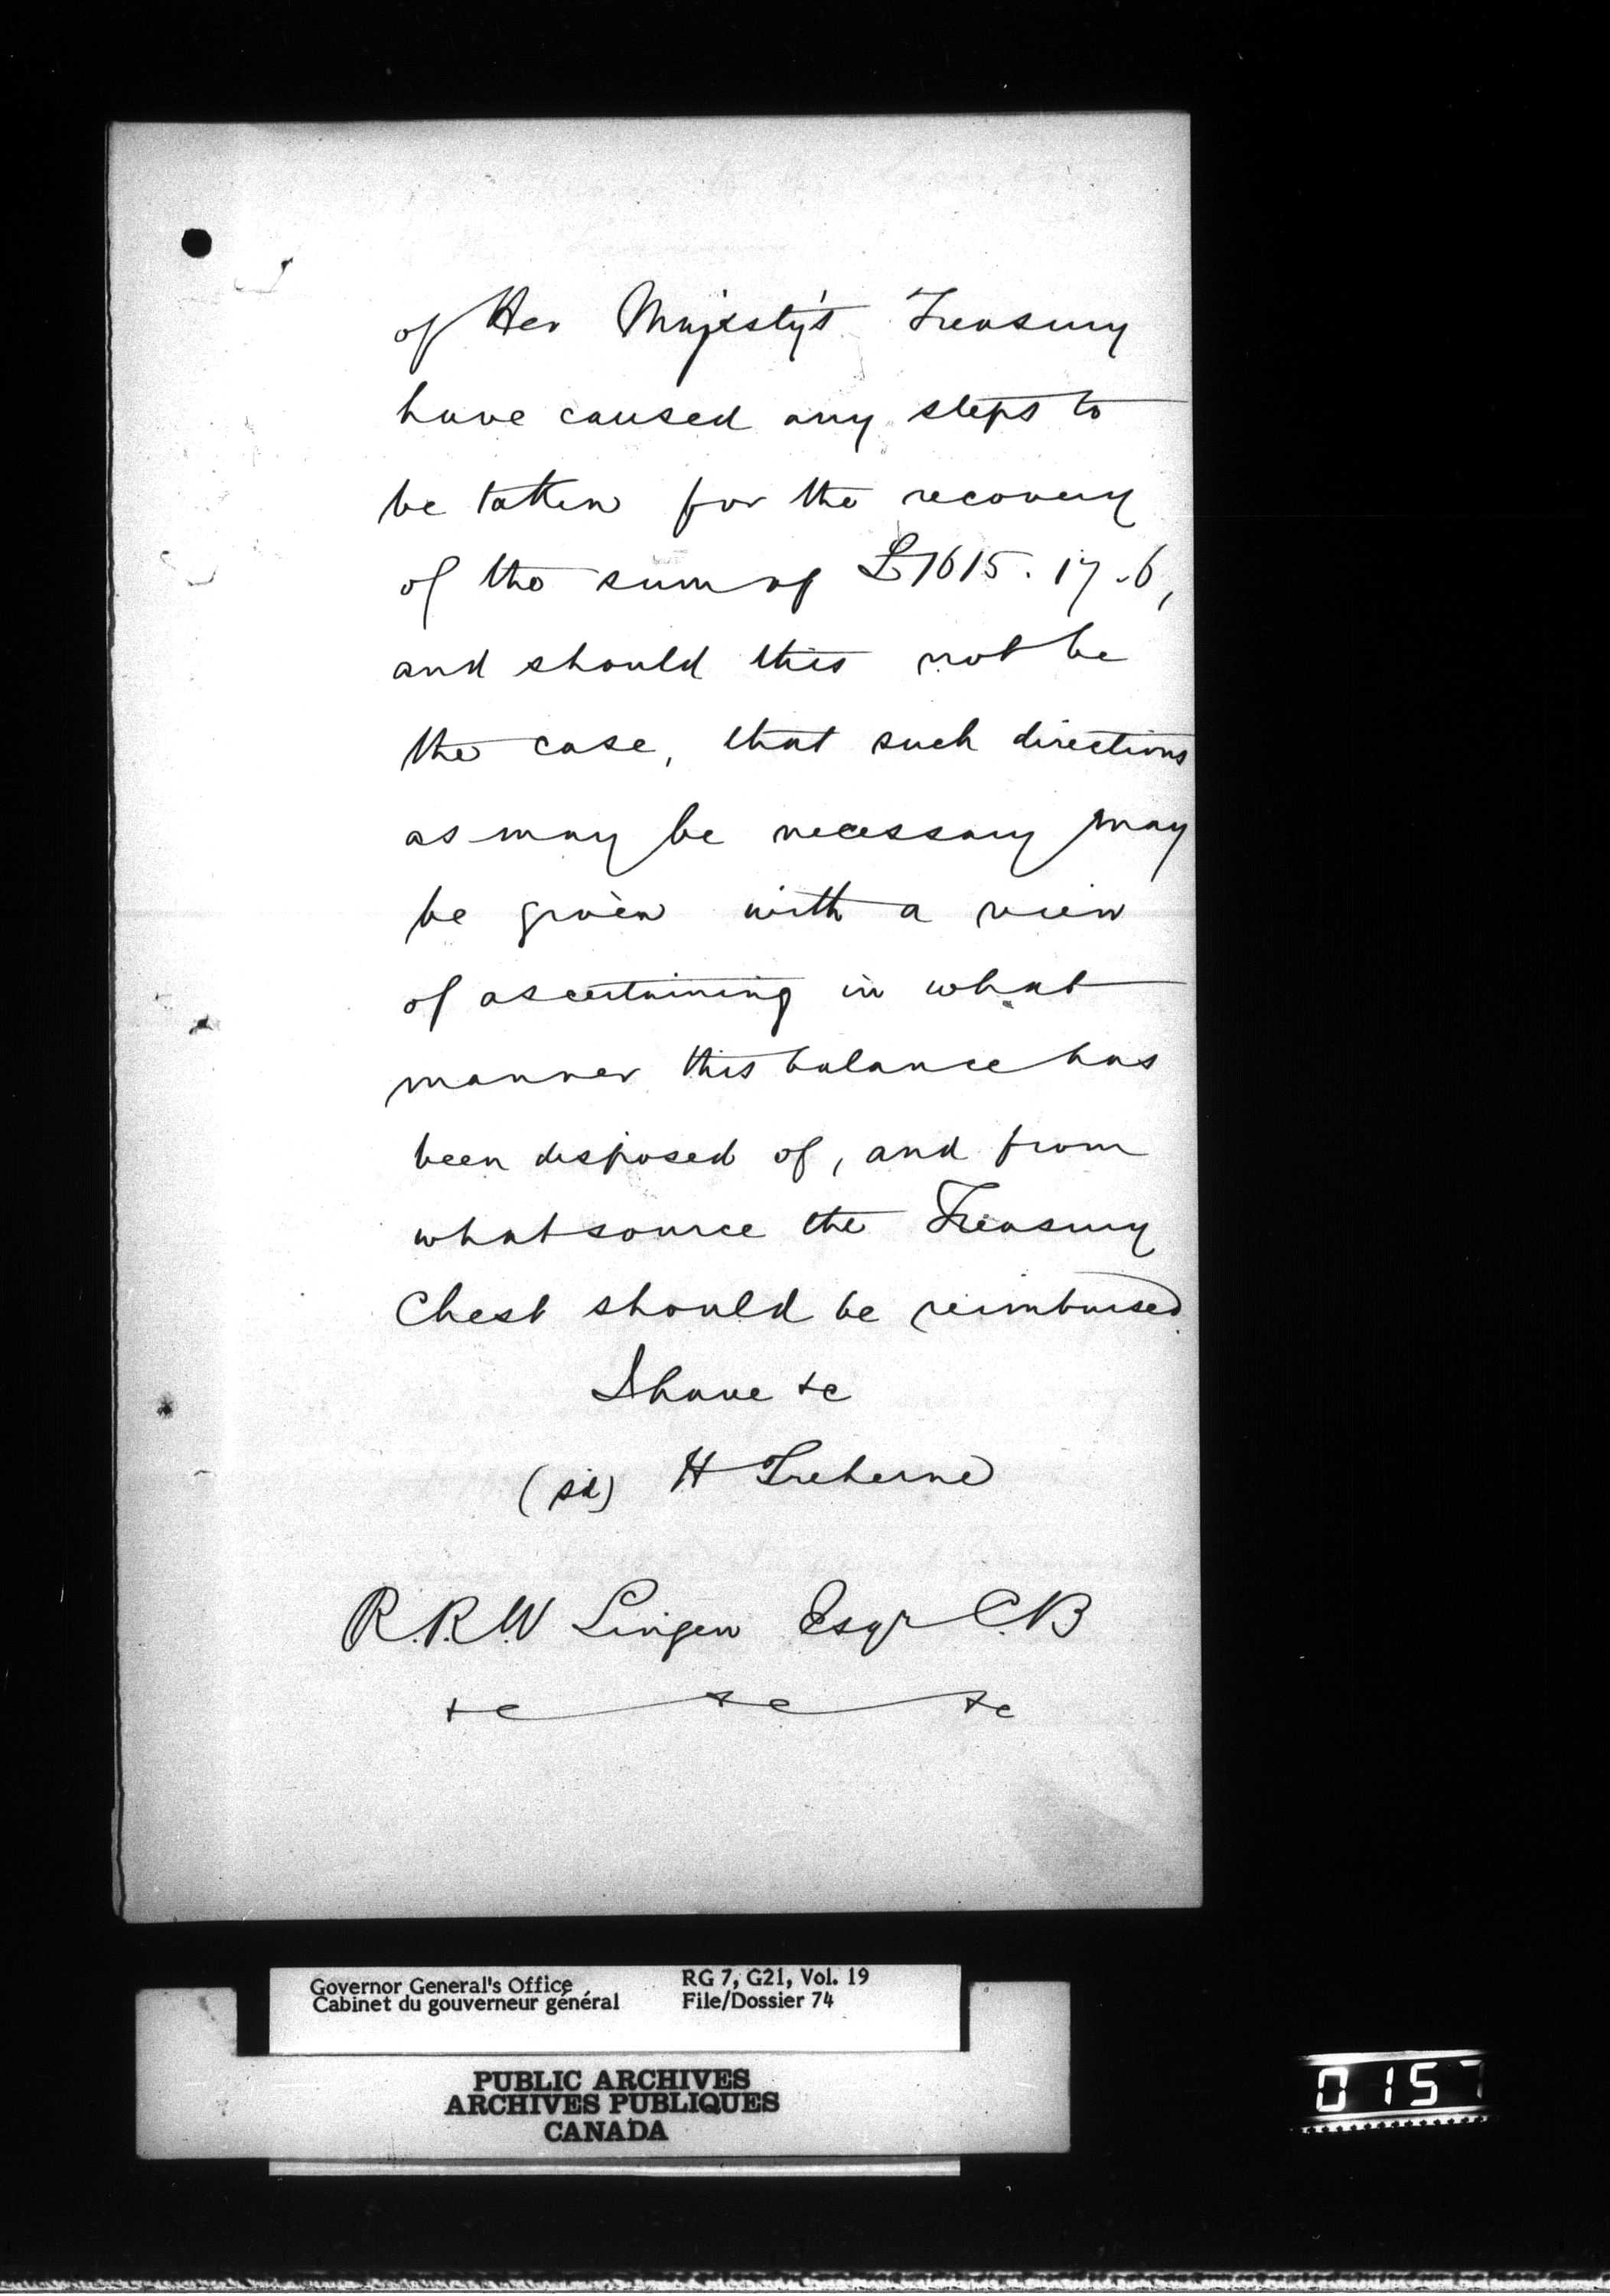 of Her Majesty's Treasury
have caused any steps to
be taken for the recovery
of the sum of £1615.17.6,
and should this not be
the case, that such directions
as may be necessary may
be given with a view
of ascertaining in what
manner this balance has
been disposed of, and from
what source the Treasury
Chest should be reimbursed.
I have &c
(sd) H Treherne
R.R.W Lingen Esqr C.B
&c &c &c
Governor General's Office
Cabinet du gouverneur général
RG 7, G21, Vol. 19
File/Dossier 74
PUBLIC ARCHIVES
ARCHIVES PUBLIQUES
CANADA
0157